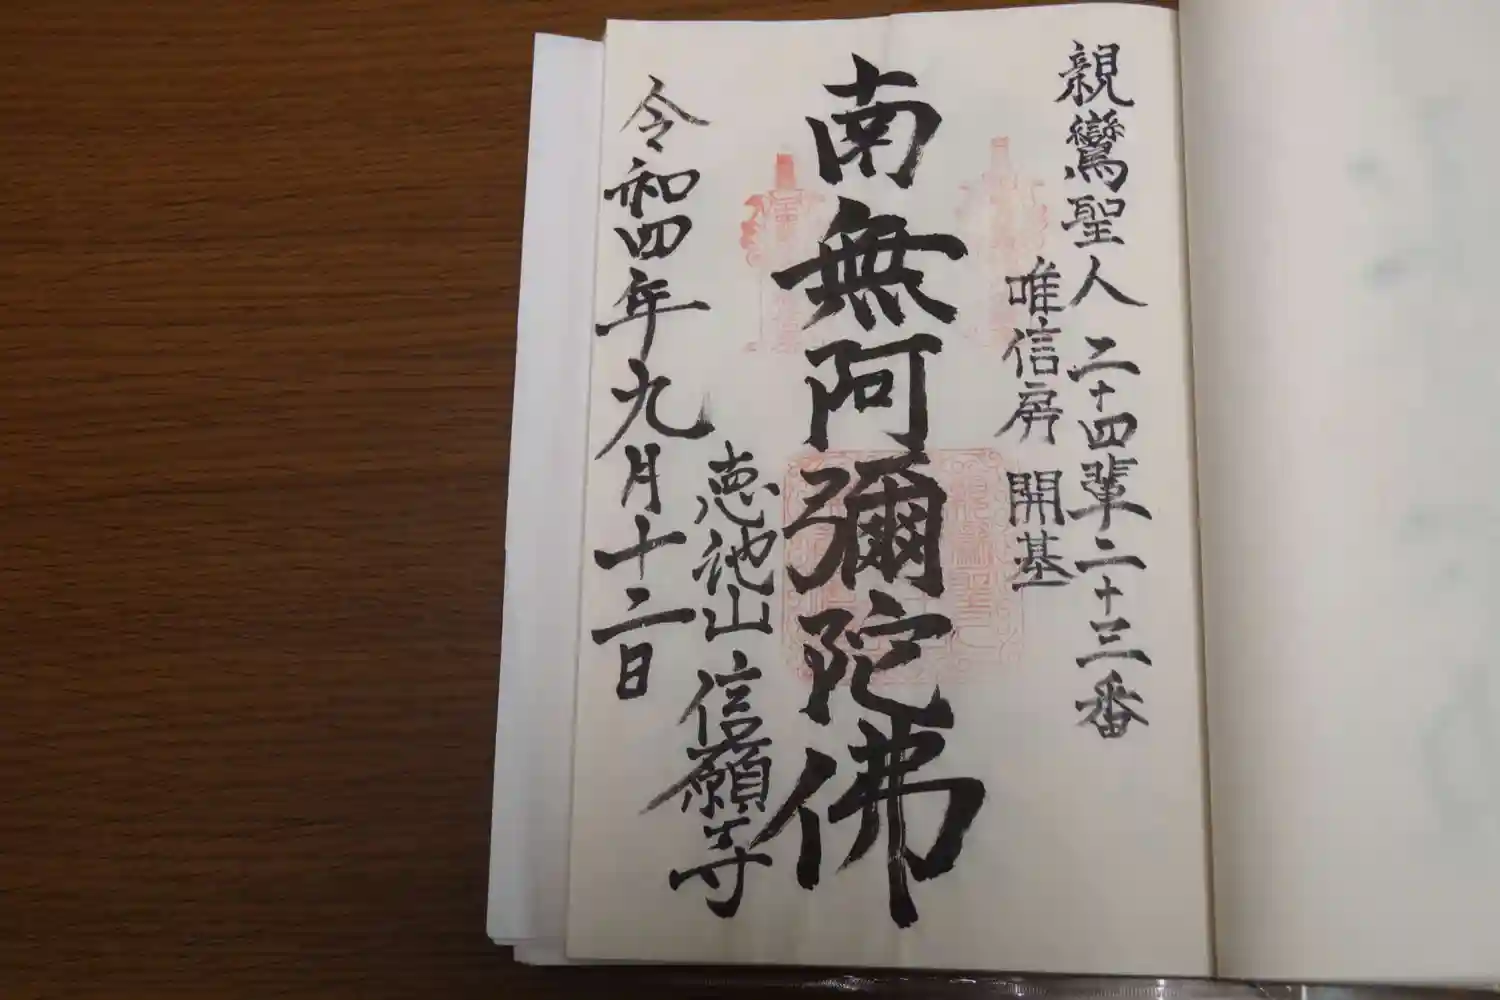 親鸞聖人 二十四輩二十三番
唯信房 開基
南無阿彌陀佛
恵池山 信願寺
令和四年九月十二日